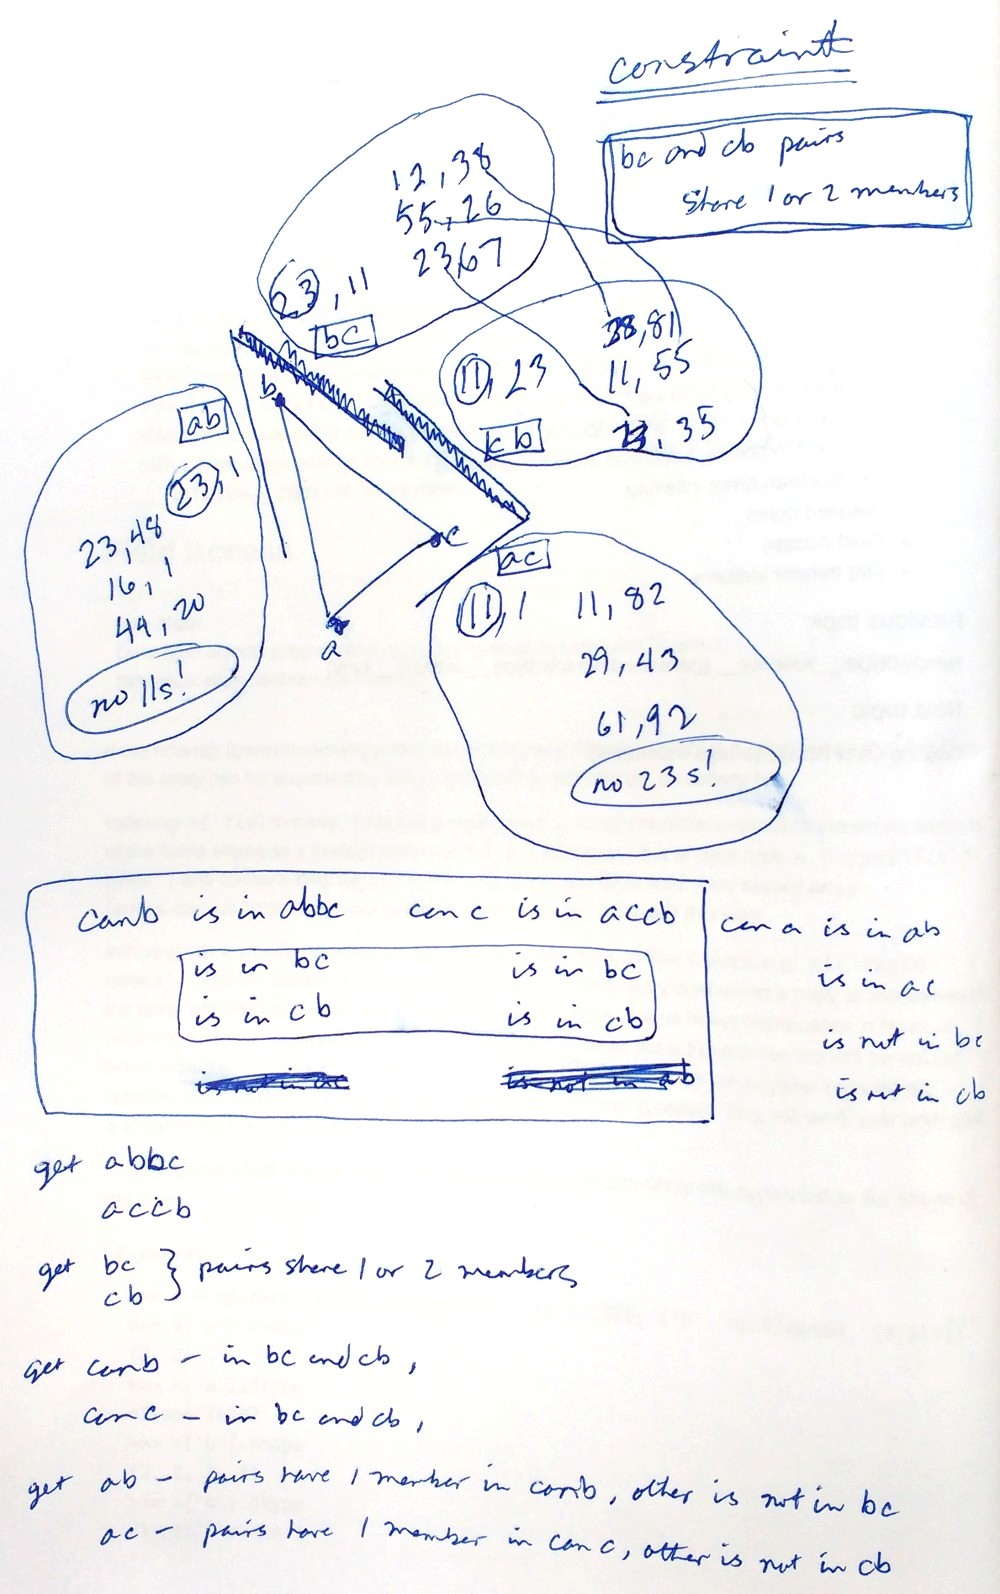 constraint
bc and cb pairs
share 1 or 2 members
12, 38
55, 26
23, 67
23, 11
bc
38, 81
11, 23
11, 55
cb
, 35
b
ab
23, 1
23, 48
16, 1
44, 20
no 11s!
c
a
ac
11, 1
11, 82
29, 43
61, 92
no 23s!
canb is in abbc
can c is in accb
can a is in ab
is in bc
is in bc
is in ac
is in cb
is in cb
is not in bc
is not in ac
is not in ab
is not in cb
get abbc
accb
get bc } pairs share 1 or 2 members
cb
get canb - in bc and cb,
can c - in bc and cb,
get ab - pairs have 1 member in canb, other is not in bc
ac - pairs have 1 member in can c, other is not in cb